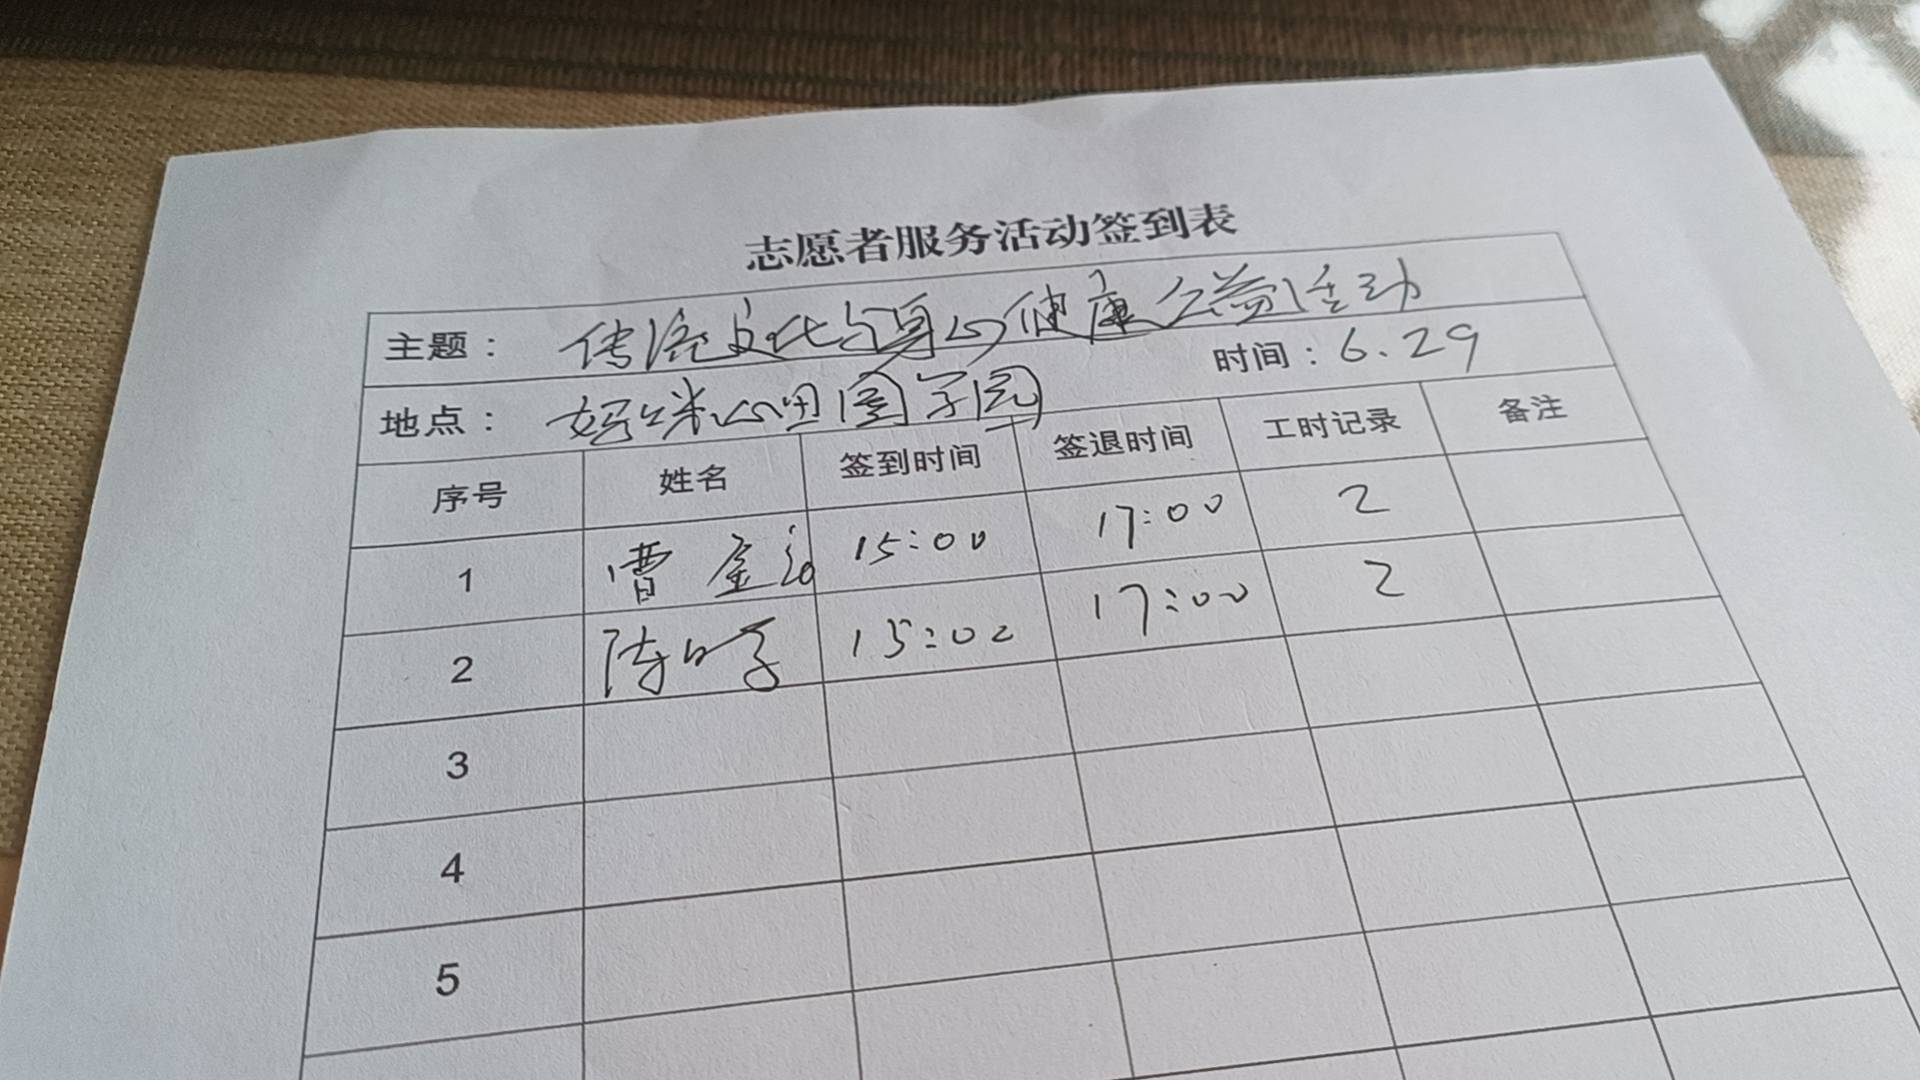 志愿者服务活动签到表
主题： 传统文化与身心健康公益活动
地点： 妈咪心田国学园 时间：6.29
序号 姓名 签到时间 签退时间 工时记录 备注
1 曹 15:00 17:00 2
2 陈 15:02 17:00 2
3
4
5